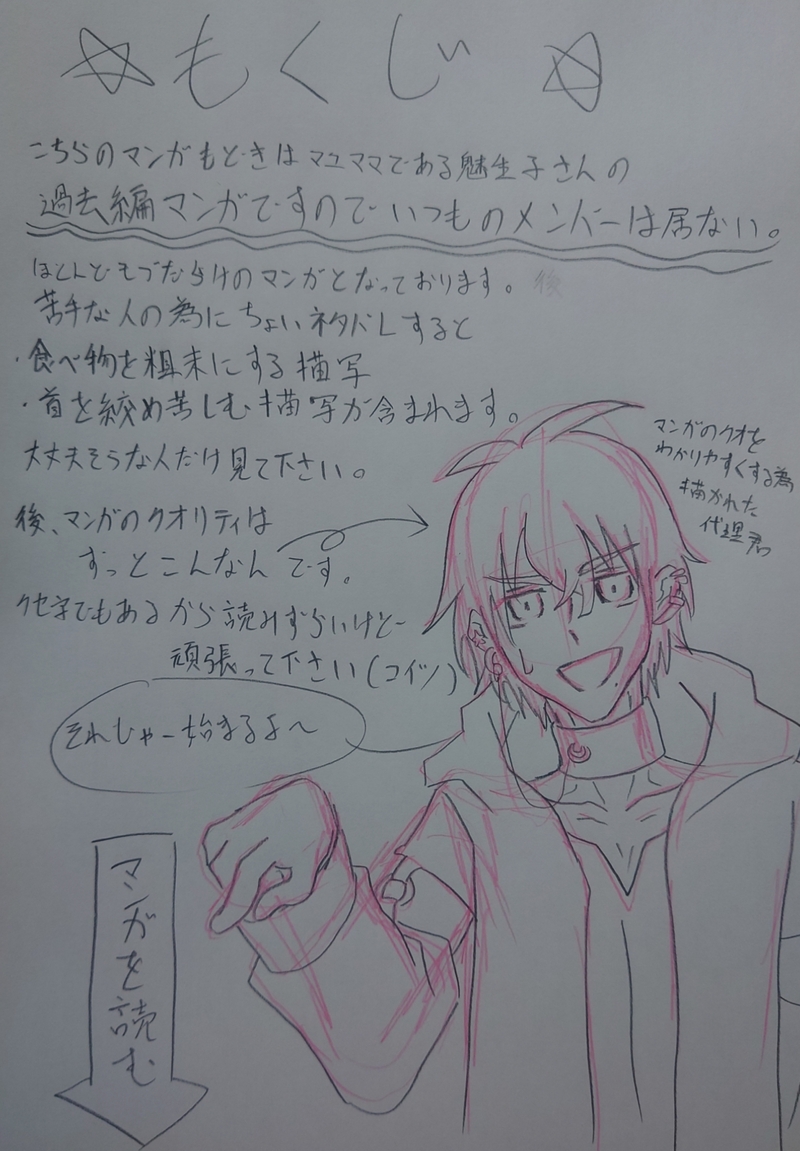 ☆もくじ☆
こちらのマンガもどきはマユママである魅生子さんの
過去編マンガですのでいつものメンバーは居ない。
ほとんどモブだらけのマンガとなっております。後
苦手な人の為にちょいネタバレすると
・食べ物を粗末にする描写
・首を絞め苦しむ描写が含まれます。
大丈夫そうな人だけ見て下さい。
後、マンガのクオリティは
ずっとこんなんです。
クセ字でもあるから読みずらいけど
頑張って下さい(コイツ)
マンガのクオを
わかりやすくする為
描かれた
代理君
それじゃー始まるよ～
マンガを読む